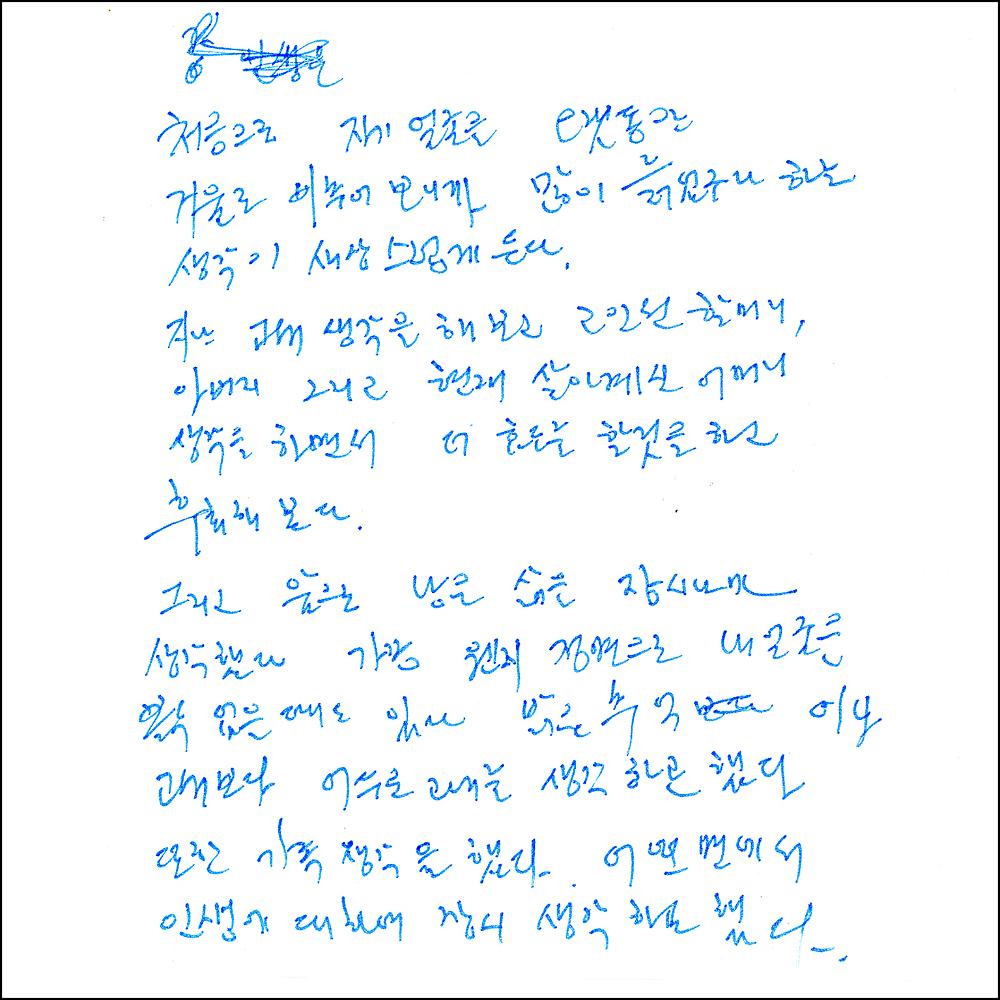 처음으로 자기 얼굴을 오랫동안
거울로 비추어 보니까 많이 늙었구나 하는
생각이 새삼스럽게 든다.
지난 과거 생각을 해보고 할머니,
아버지 그리고 현재 살아계신 어머니
생각을 하면서 더 효도를 할것을 하고
후회해 본다.
그리고 앞으로 남은 삶을 잠시나마
생각했다 가끔 웬지 정면으로 내 얼굴을
볼수 없을 때도 있다 밝은 추억 보다 이냐
과거보다 어두운 과거를 생각하곤 했다
또한 가족 생각을 했다. 어떤 면에서
인생에 대하여 잠시 생각하곤 했다.